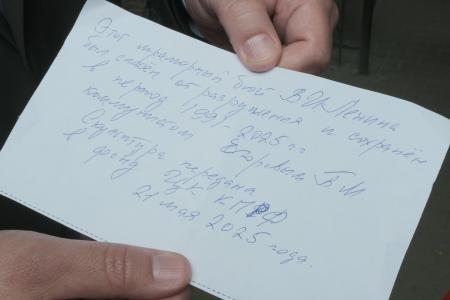 Этот мраморный бюст В.И. Ленина
был спасён от разрушения и сохранён
в период 1991-2025 гг
коммунистом Егоровым Б М
Скульптура передана
в фонд ЦК КПРФ
21 мая 2025 года.